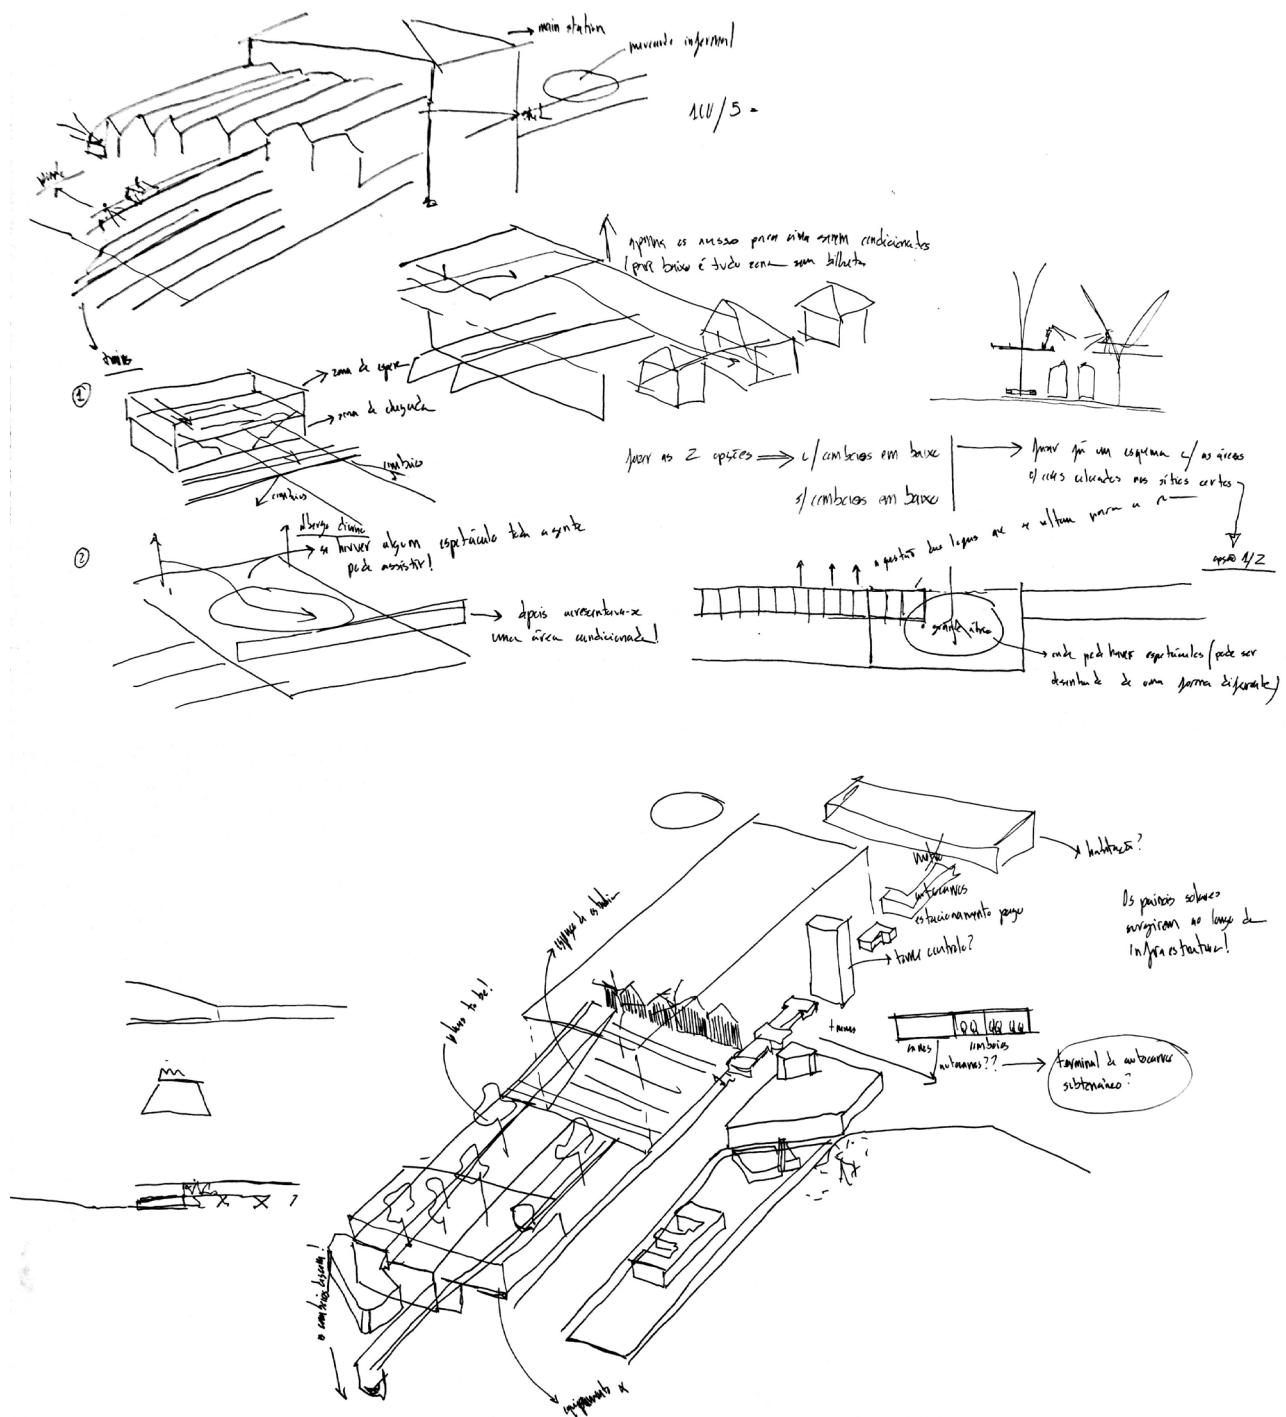 main station
mercado informal
100/5 =
apenas os acesso para cima serem condicionates
(por baixo é tudo zona sem bilhetes
①
zona de espera
zona de chegada
comboio
comboios
fazer as 2 opções ⟹ c/ comboios em baixo
s/ comboios em baixo
fazer já um esquema c/ as áreas
colocadas nos sítios certos
opção 1/2
②
albergo diurno
se houver algum espetáculo toda a gente
pode assistir!
depois apresentava-se
uma área condicionada!
a questão das lojas que se voltam para a
grande átrio
onde pode haver espetáculos (pode ser
desenhado de uma forma diferente)
habitação?
metro
autocarros
estacionamento pago
torre controlo?
Os painéis solares
surgirem ao longo da
infraestrutura!
espaço de estudo
places to be!
comboios
autocarros??
terminal de autocarros
subterrâneo?
o comboio descem!
equipamento